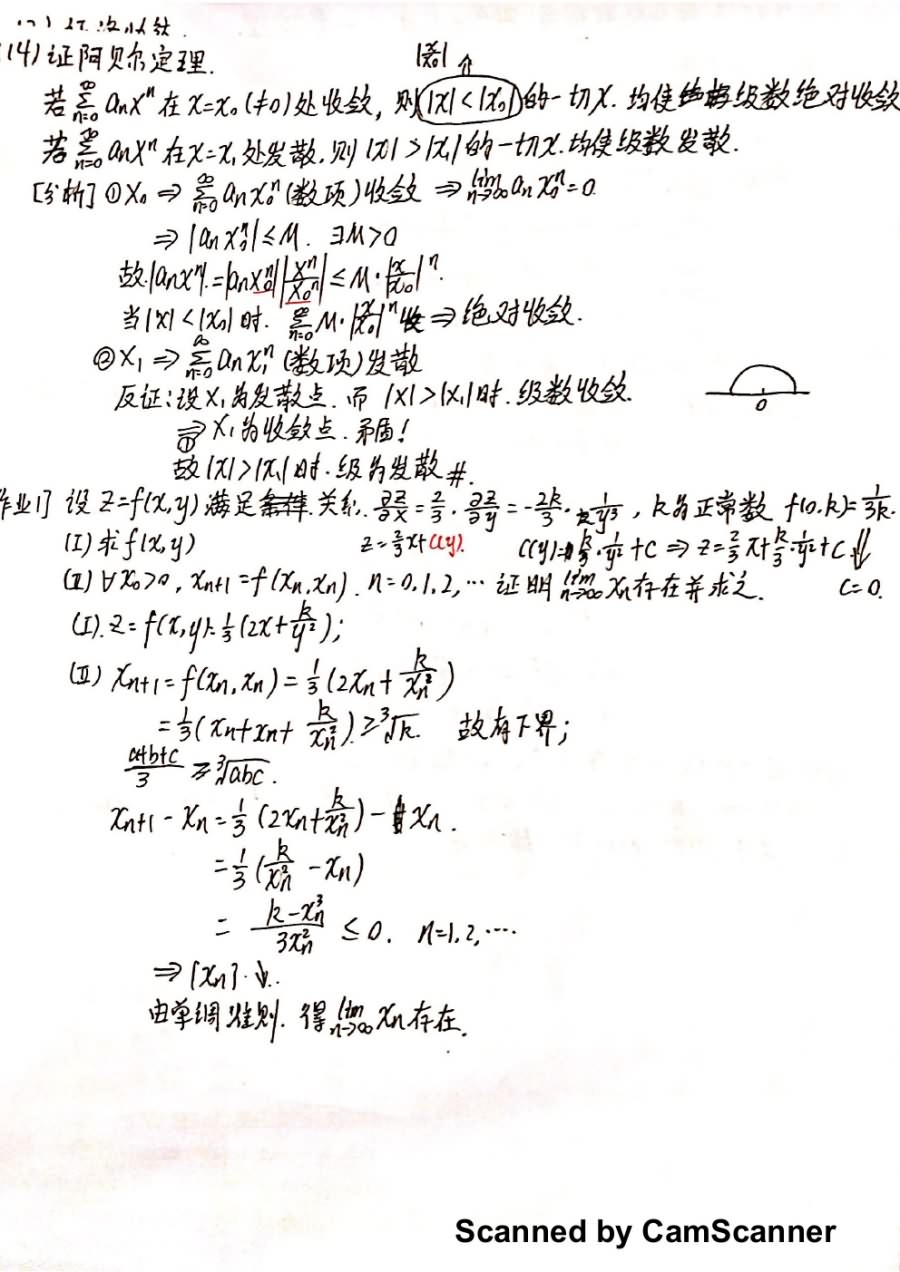 (14) 证阿贝尔定理.
若 ∑_{n=0}^{∞} aₙxⁿ 在 x=x₀(≠0)处收敛, 则 |x|<|x₀| 的一切x. 均使级数绝对收敛
若 ∑_{n=0}^{∞} aₙxⁿ 在x=x₁处发散. 则 |x|>|x₁|的一切x. 均使级数发散.
[分析] ① x₀ ⇒ ∑_{n=0}^{∞} aₙx₀ⁿ (数项) 收敛 ⇒ lim_{n→∞} aₙx₀ⁿ=0
⇒ |aₙx₀ⁿ| ≤ M. ∃M>0
故.|aₙxⁿ|=|aₙx₀ⁿ||xⁿ/x₀ⁿ| ≤ M·|x/x₀|ⁿ.
当|x|<|x₀|时. ∑_{n=0}^{∞} M·|x/x₀|ⁿ 收 ⇒ 绝对收敛.
② x₁ ⇒ ∑_{n=0}^{∞} aₙx₁ⁿ (数项) 发散
反证: 设x₁为发散点. 而 |x|>|x₁|时. 级数收敛.
0
⇒① x₁为收敛点. 矛盾!
故|x|>|x₁|时. 级为发散 #.
作业1] 设 z=f(x,y) 满足关系. ∂z/∂x=2/3. ∂z/∂y=-2k/3·1/y³, k为正常数 f(0,k)=1/3k.
(I) 求f(x,y) z=2/3x+C(y). C(y)=k/3·1/y²+C ⇒ z=2/3x+k/3·1/y²+C ⇓
(II) ∀x₀>0, xₙ₊₁=f(xₙ,xₙ). n=0,1,2,⋯ 证明 lim_{n→∞} xₙ存在并求之. C=0.
(I). z=f(x,y)=1/3(2x+k/y²);
(II) xₙ₊₁=f(xₙ,xₙ)=1/3(2xₙ+k/xₙ²)
=1/3(xₙ+xₙ+k/xₙ²) ≥ ∛k. 故有下界;
(a+b+c)/3 ≥ ∛abc.
xₙ₊₁-xₙ=1/3(2xₙ+k/xₙ²)-xₙ.
=1/3(k/xₙ²-xₙ)
=(k-xₙ³)/3xₙ² ≤ 0. n=1,2,⋯
⇒ {xₙ}.↓.
由单调准则. 得 lim_{n→∞} xₙ存在.
Scanned by CamScanner